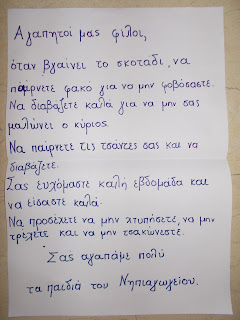 Αγαπητοί μας φίλοι,
όταν βγαίνει το σκοτάδι, να
παίρνετε φακό για να μην φοβόσαστε.
Να διαβάζετε καλά για να μην σας
μαλώνει ο κύριος.
Να παίρνετε τις τσάντες σας και να
διαβάζετε.
Σας ευχόμαστε καλή εβδομάδα και
να είσαστε καλά.
Να προσέχετε να μην χτυπήσετε, να μην
τρέχετε και να μην τσακώνεστε.
Σας αγαπάμε πολύ
τα παιδιά του Νηπιαγωγείου.